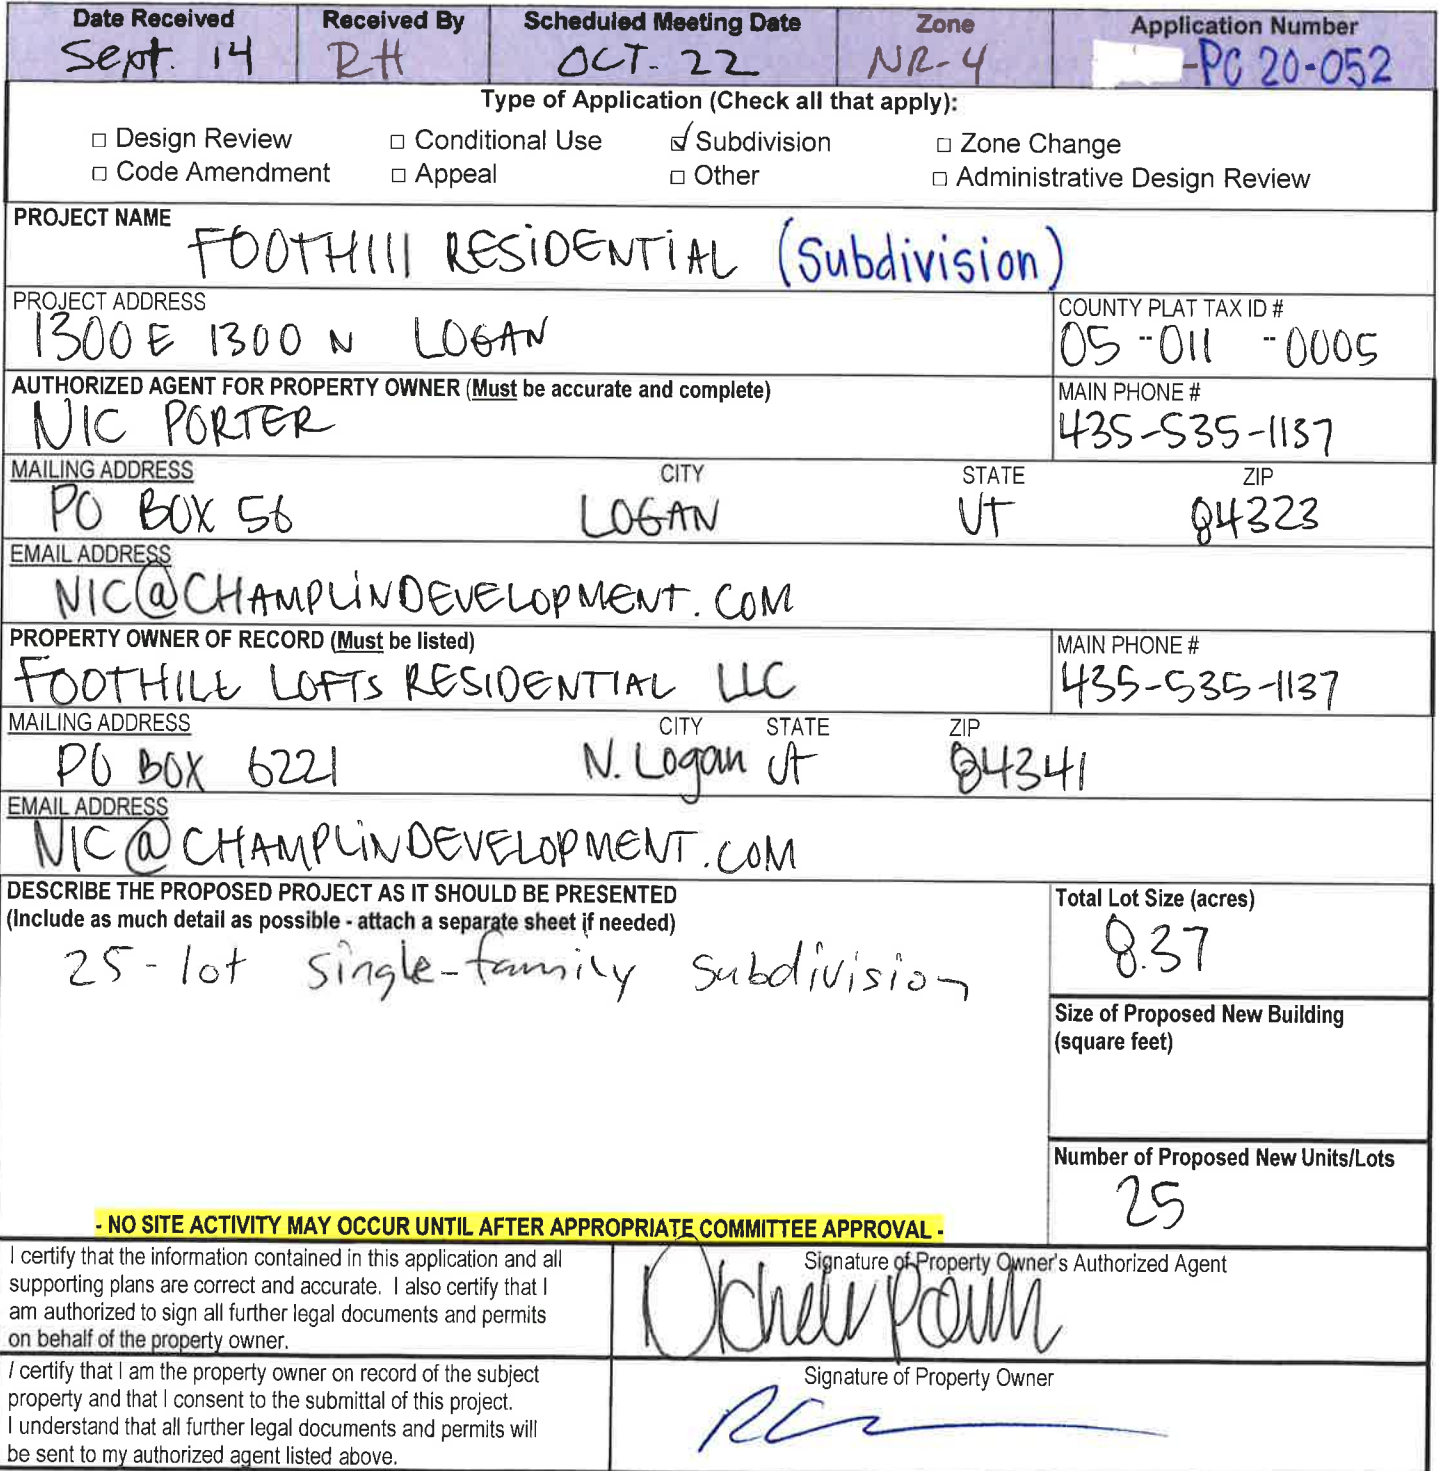 Date Received Received By Scheduled Meeting Date Zone Application Number
Sept. 14 RH OCT. 22 NR-4 -PC 20-052
Type of Application (Check all that apply):
□ Design Review □ Conditional Use ☑ Subdivision □ Zone Change
□ Code Amendment □ Appeal □ Other □ Administrative Design Review
PROJECT NAME
FOOTHIll RESiDENTiAL (Subdivision)
PROJECT ADDRESS COUNTY PLAT TAX ID #
1300 E 1300 N LOGAN 05 -011 -0005
AUTHORIZED AGENT FOR PROPERTY OWNER (Must be accurate and complete) MAIN PHONE #
NIC PORTER 435-535-1137
MAILING ADDRESS CITY STATE ZIP
PO BOX 56 LOGAN UT 84323
EMAIL ADDRESS
NIC@CHAMPLiNDEVELOPMENT.COM
PROPERTY OWNER OF RECORD (Must be listed) MAIN PHONE #
FOOTHILL LOFTS RESIDENTIAL LLC 435-535-1137
MAILING ADDRESS CITY STATE ZIP
PO BOX 6221 N. Logan UT 84341
EMAIL ADDRESS
NIC@CHAMPLiNDEVELOPMENT.COM
DESCRIBE THE PROPOSED PROJECT AS IT SHOULD BE PRESENTED Total Lot Size (acres)
(Include as much detail as possible - attach a separate sheet if needed)
25-lot single-family subdivision 8.37
Size of Proposed New Building
(square feet)
Number of Proposed New Units/Lots
25
- NO SITE ACTIVITY MAY OCCUR UNTIL AFTER APPROPRIATE COMMITTEE APPROVAL -
I certify that the information contained in this application and all
supporting plans are correct and accurate. I also certify that I
am authorized to sign all further legal documents and permits
on behalf of the property owner.
Signature of Property Owner's Authorized Agent
I certify that I am the property owner on record of the subject
property and that I consent to the submittal of this project.
I understand that all further legal documents and permits will
be sent to my authorized agent listed above.
Signature of Property Owner